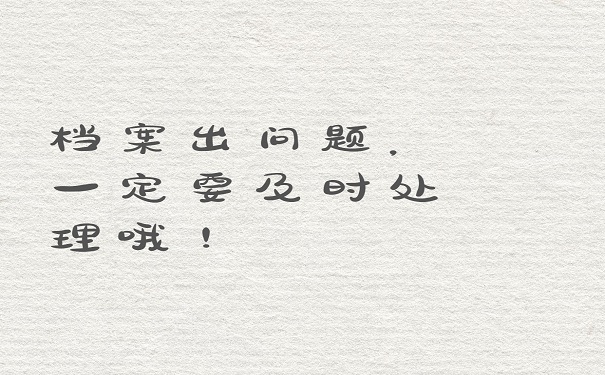 档案出问题，
一定要及时处
理哦！